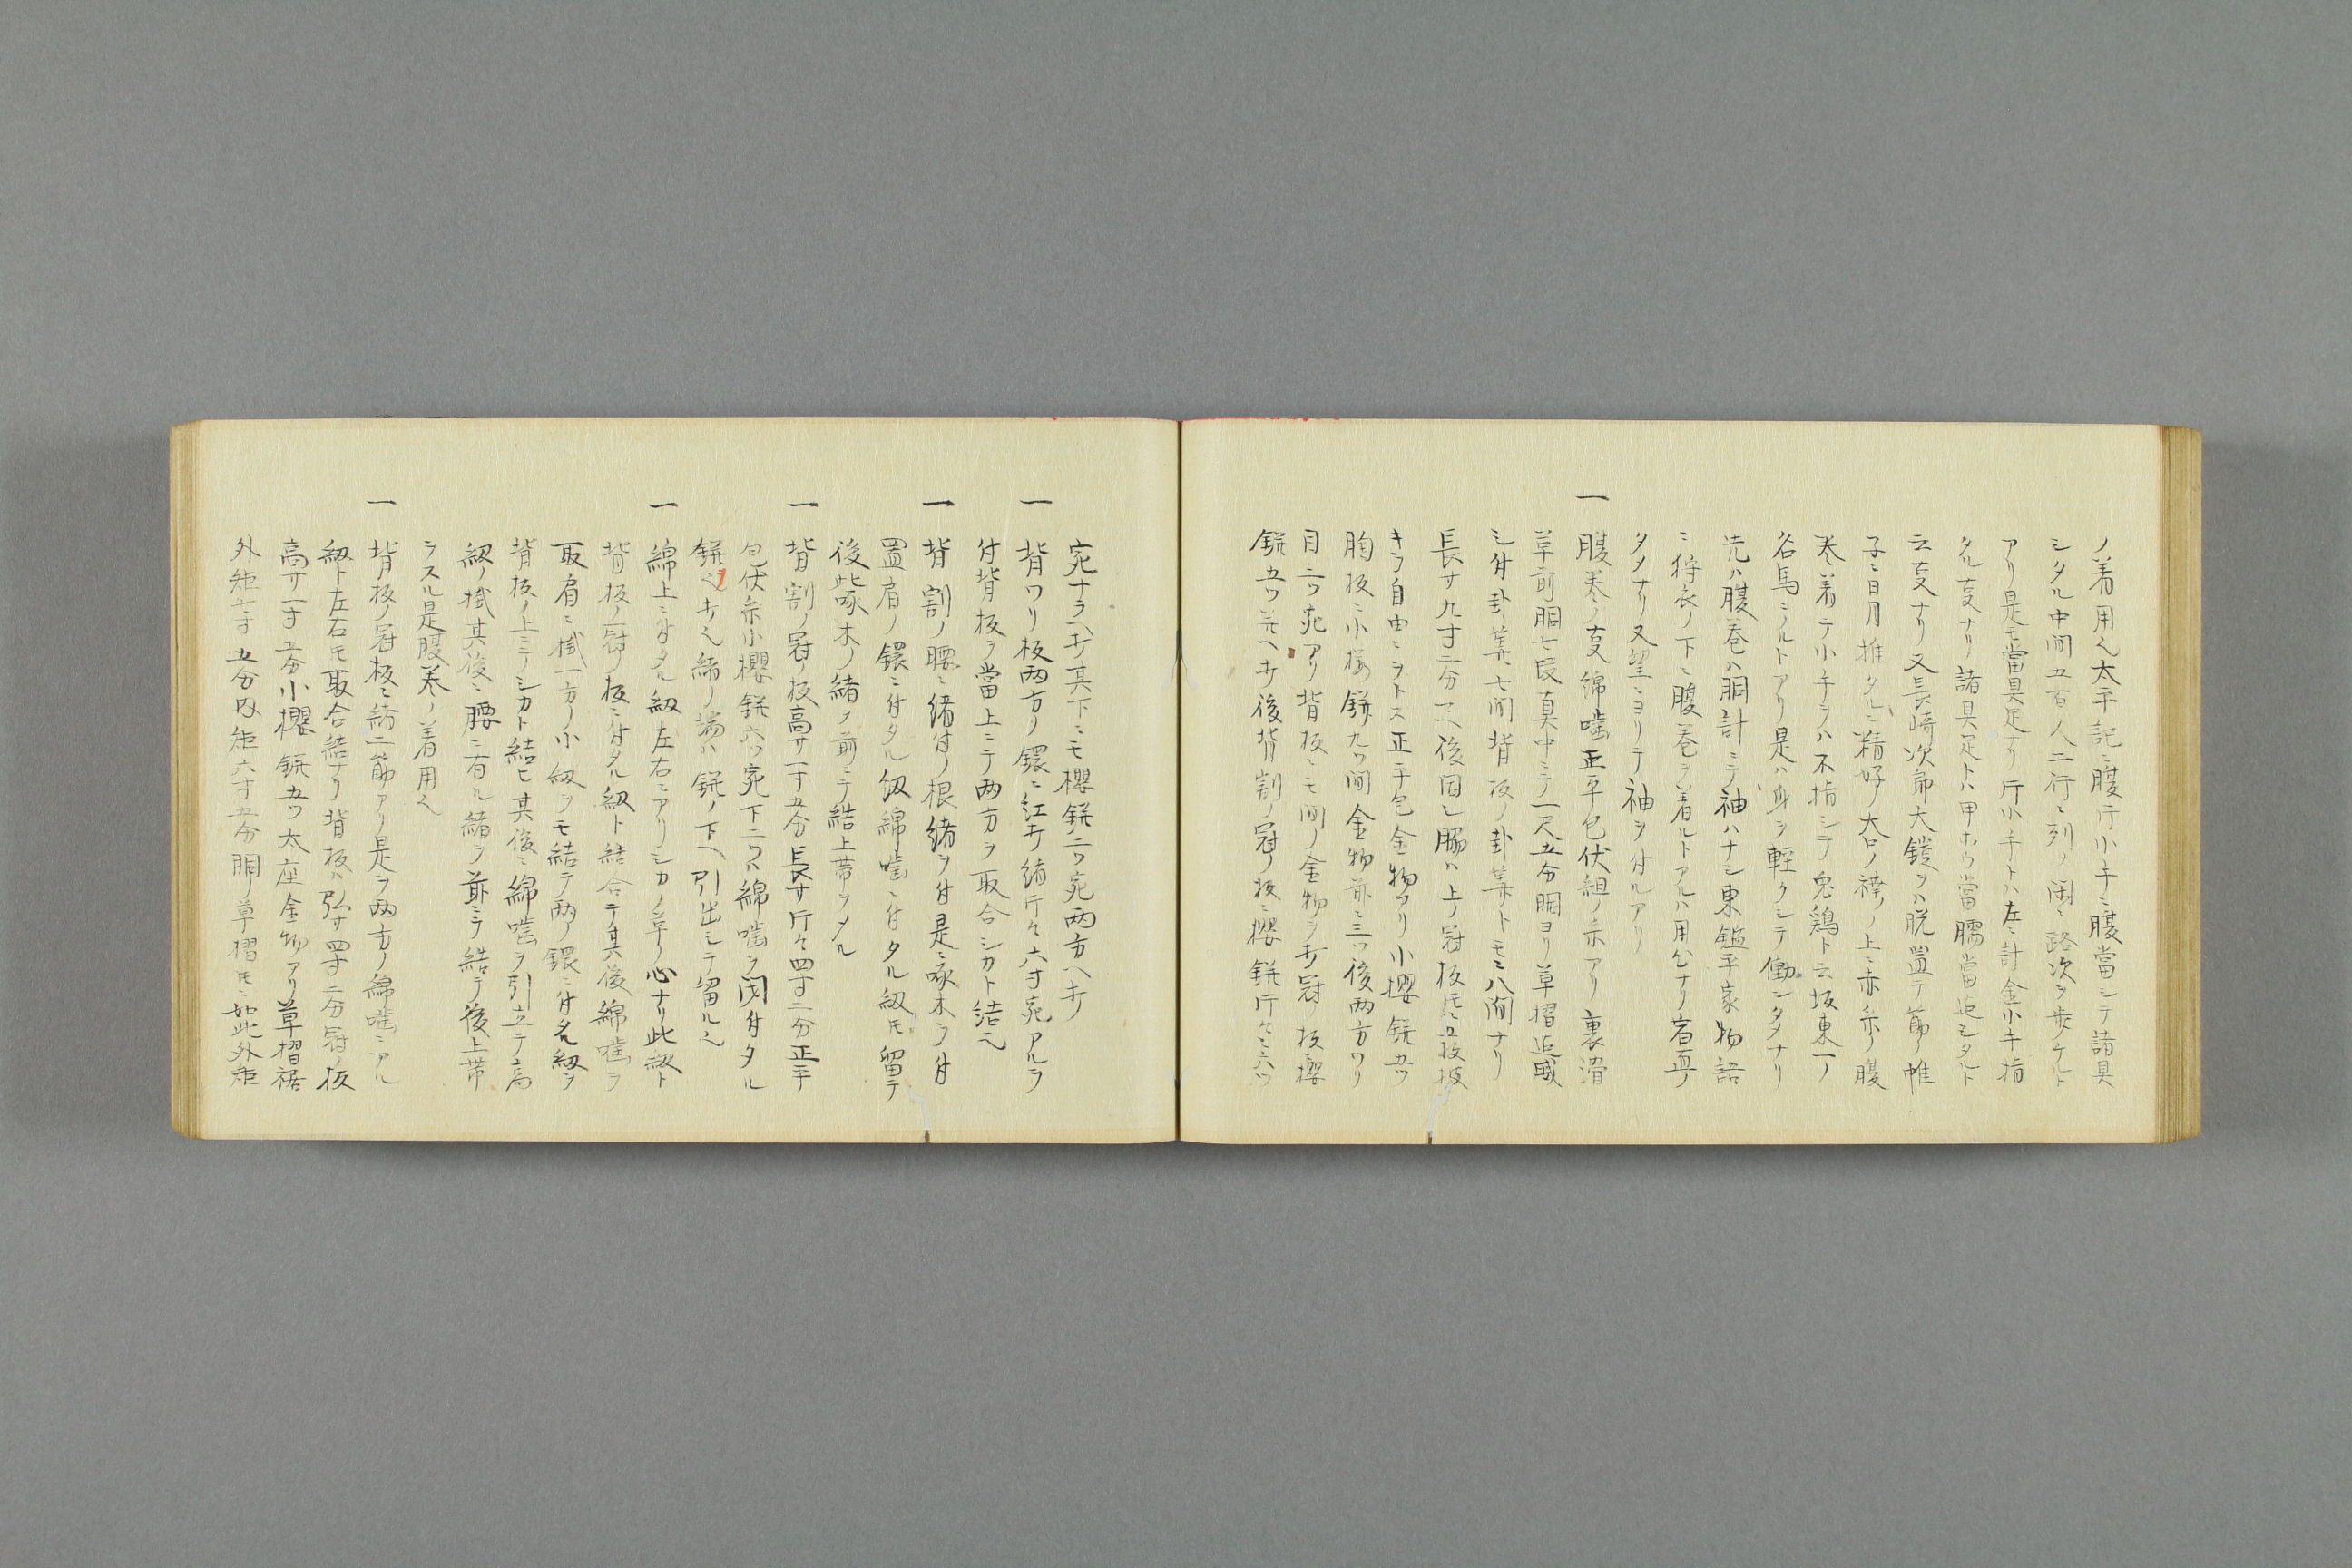 ノ着用也太平記ニ腹行小手ニ腹當シテ諸具
シタル中間五百人二行ニ列ヲ閑ニ路次ヲ歩ケルト
アリ是モ當具足ナリ片小手トハ左ニ計金小手指
タル叓ナリ諸具足トハ甲ホウ當臑當迄シタルト
云叓ナリ又長崎次郎大鎧ヲハ脱置テ節ノ帷
子ニ日月推タルニ精好ノ大口ノ袴ノ上ニ赤糸ノ腹
巻着テ小手ヲハ不指シテ兎鶏ト云坂東一ノ
名馬ニノルトアリ是ハ身ヲ軽クシテ働ンタメナリ
先ハ腹巻ハ胴計ニテ袖ハナシ東鑑平家物語
ニ狩衣ノ下ニ腹巻ヲ着ルトアルハ用心ナリ宿直ノ
タメナリ又望ニヨリテ袖ヲ付ルアリ
一 腹巻ノ叓綿噛正平包伏組ノ糸アリ裏滑
草前胴七段真中ニテ一尺五分胴ヨリ草摺迄威
シ付卦算七間背板ノ卦算トモニ八間ナリ
長サ九寸二分也後同シ脇ハ上ノ冠板
キラ自由ニヲトス正平包金物アリ小櫻鋲五ツ
胸板ニ小櫻鋲九ツ間金物前ニ三ツ後両方ワリ
目三ツ宛アリ背板ニモ間ノ金物ヲ打冠板櫻
鋲五ツ并ヘ打後背割ノ冠ノ板ニ櫻鋲片々ニ六ツ
宛ナラヘ打其下ニモ櫻鋲二ツ宛両方ヘ打
一 背ワリ板両方ノ鐶ニ紅打緒片々六寸宛アルヲ
付背板ヲ當上ニテ両方ヲ取合シカト結也
一 背割ノ腰ニ緒付ノ根緒ヲ付是ニ啄木ヲ付
置肩ノ鐶ニ付タル紐綿噛ニ付タル紐モ留テ
後啄木ノ緒ヲ前ニテ結上帯ヲメル
一 背割ノ冠ノ板高サ一寸五分長サ片々四寸二分正平
包伏糸小櫻鋲六ツ宛下二ツハ綿噛ヲ閉付タル
鋲ヘ打也緒ノ端ハ鋲ノ下ヘ引出シテ留ル也
一 綿上ニ付タル紐左右ニアリシカノ草ノ心ナリ此紐ト
背板ノ冠ノ板ニ付タル紐ト結合テ其後綿噛ヲ
取肩ニ掛一方ノ小紐ヲモ結テ両ノ鐶ニ付タル紐ヲ
背板ノ上ニテシカト結ヒ其後ニ綿噛ヲ引立テ高
紐ノ掛其後ニ腰ニ有ル緒ヲ前ニテ結テ後上帯
ヲスル是腹巻ノ着用也
一 背板ノ冠板ニ緒二節アリ是ヲ両方ノ綿噛ニアル
紐ト左右モ取合結ナリ背板ハ弘サ四寸二分冠ノ板
高サ一寸五分小櫻鋲五ツ太座金物アリ草摺裾
外矩七寸五分内矩六寸五分胴ノ草摺モニ如此外矩